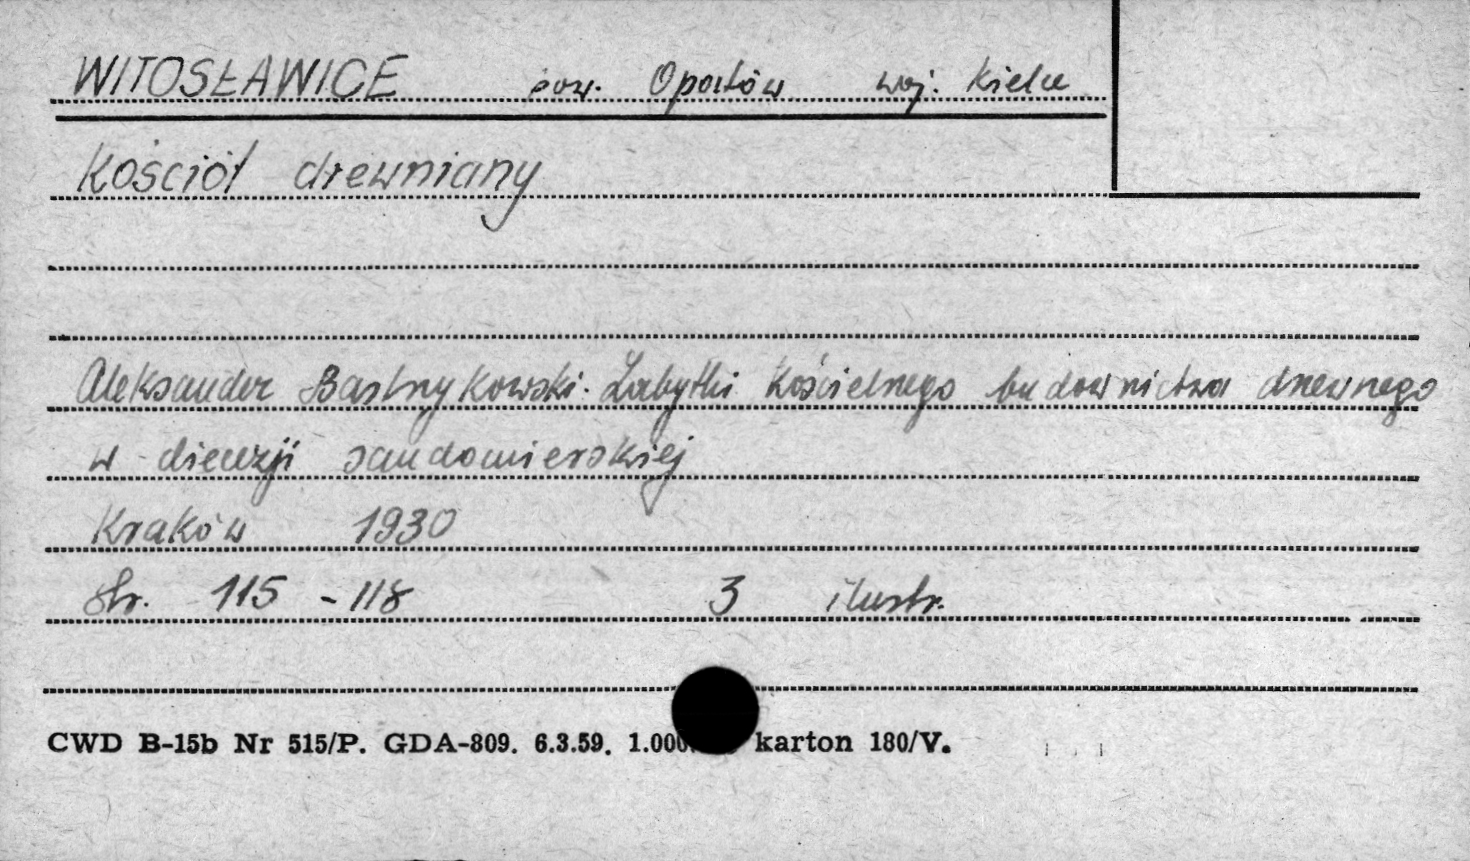 WITOSŁAWICE pow. Opatów woj. Kielce
Kościół drewniany
Aleksander Bastrzykowski. Zabytki kościelnego budownictwa drewnego
w diecezji sandomierskiej
Kraków 1930
str. 115 - 118 3 ilustr.
CWD B-15b Nr 515/P. GDA-809. 6.3.59. karton 180/V.